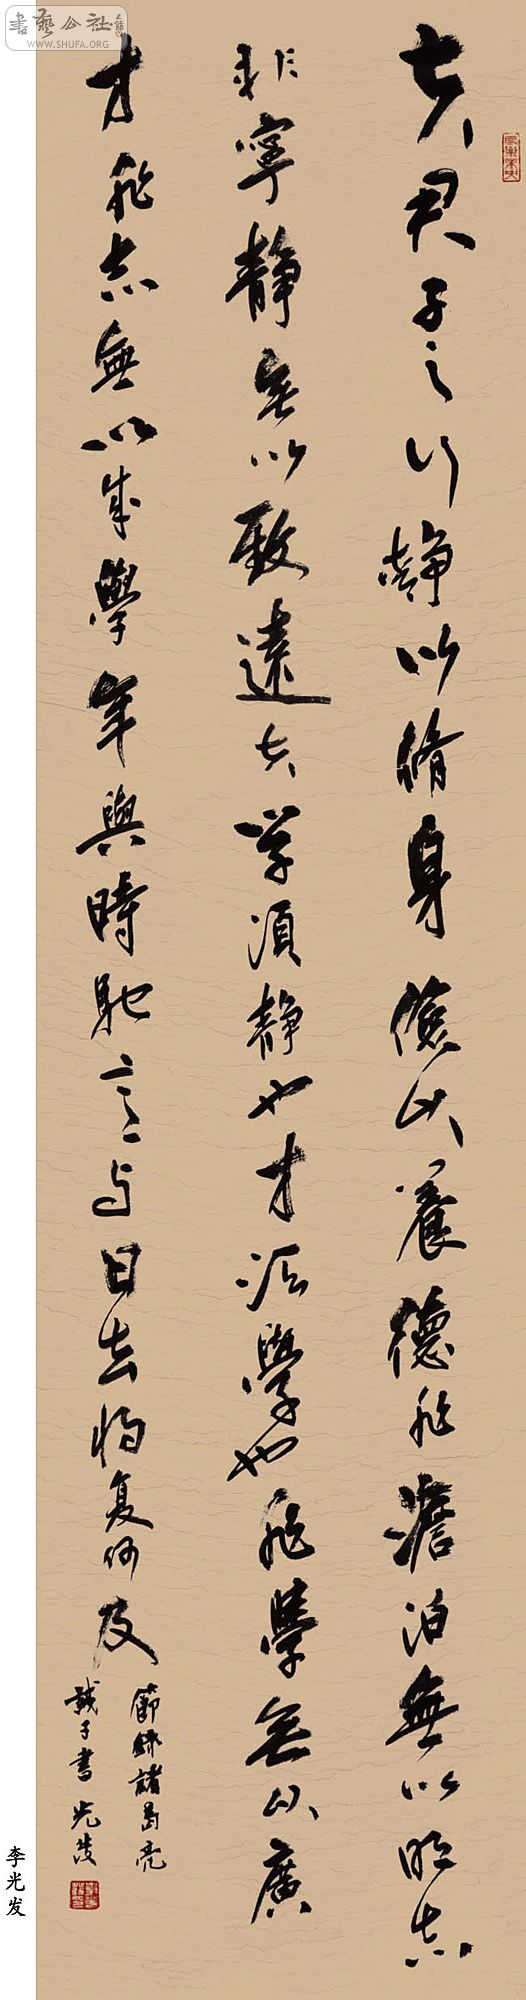 夫君子之行静以脩身儉以養德非澹泊無以明志
非寧静無以致遠夫学須静也才須學也非學無以廣
才非志無以成學年與時馳意与日去将复何及
節録諸葛亮
誡子書 光發
李光发
書藝公社
WWW.SHUFA.ORG